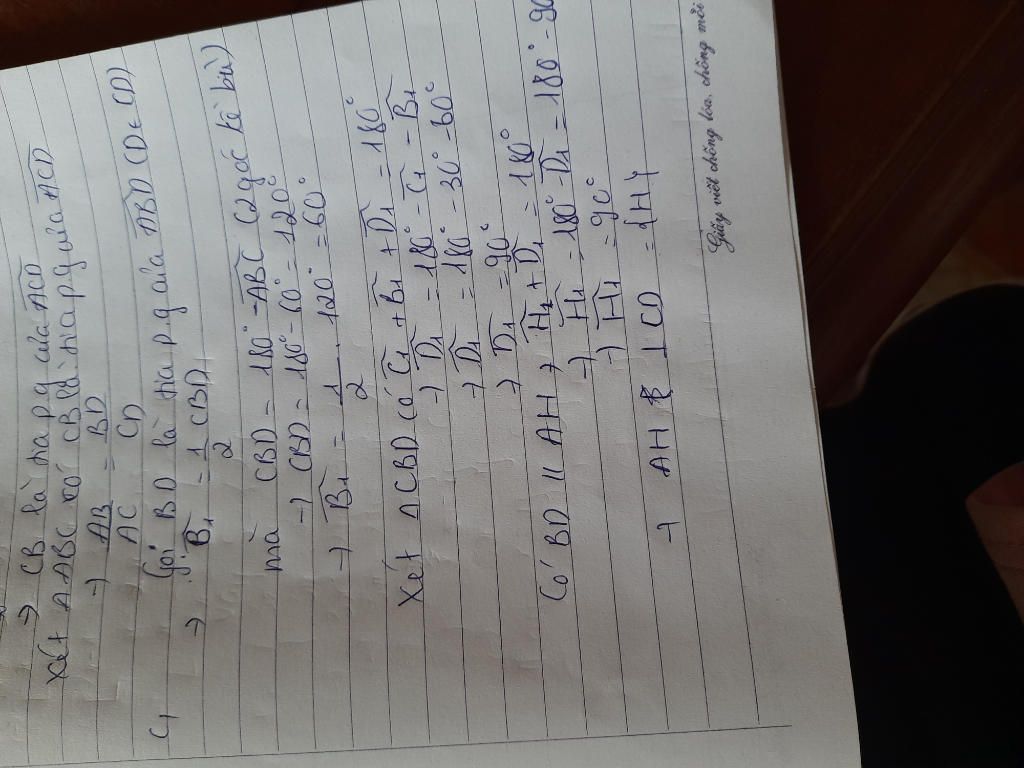 → CB là tia pg của ACD
Xét △ABC có CB là tia pg của ACD
→ AB/AC = BD/CD
C1 Gọi BD là tia pg của ABD (D∈CD)
→ B1 = 1/2 CBD1
mà CBD = 180° - ABC (2 góc kề bù)
→ CBD = 180° - 60° = 120°
→ B1 = 1/2 . 120° = 60°
Xét △CBD có C1 + B1 + D1 = 180°
→ D1 = 180° - C1 - B1
→ D1 = 180° - 30° - 60°
→ D1 = 90°
Có BD // AH → H1 + D1 = 180°
→ H1 = 180° - D1 = 180° - 90
→ H1 = 90°
→ AH ⊥ CD = {H}
Giấy viết chống lóa, chống mỏi